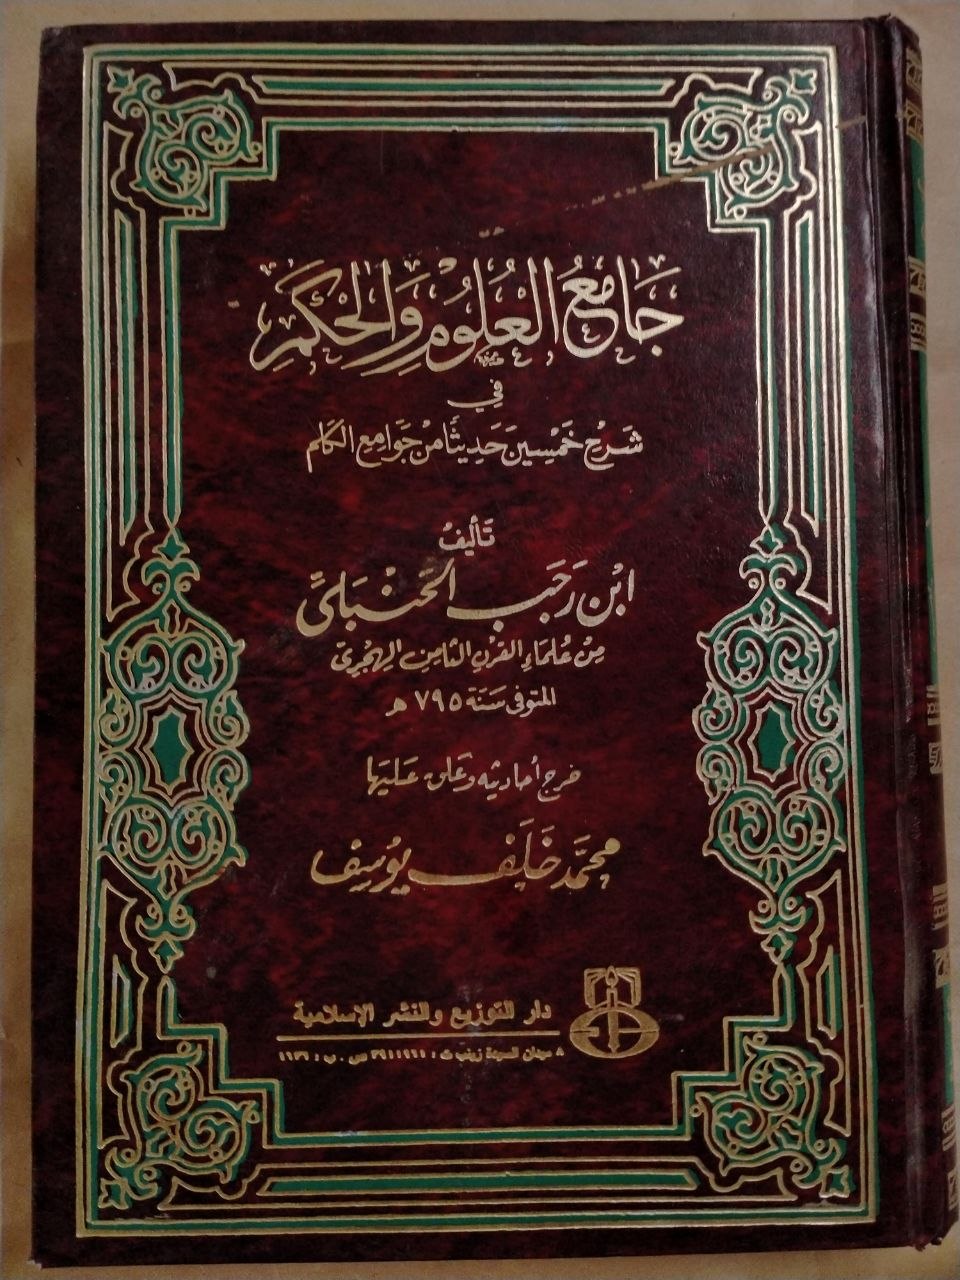 جَامِعُ العُلُومِ وَالحِكَمِ
فِي
شَرْحِ خَمْسِينَ حَدِيثًا مِنْ جَوَامِعِ الكَلِم
تَأليفُ
ابْنِ رَجَبِ الحَنْبَلِىِّ
مِنْ عُلمَاءِ القَرْنِ الثَّامِنِ الهِجْرِىّ
المتوفى سَنَة ٧٩٥ هـ
خرج أحاديثه وعَلق عَليهَا
محمَّد خَلَف يوُسِف
دار التوزيع والنشر الإسلامية
٨ ميدان السيدة زينب ت : ٣٩١١٩٦١ ص . ب : ١٦٣٦